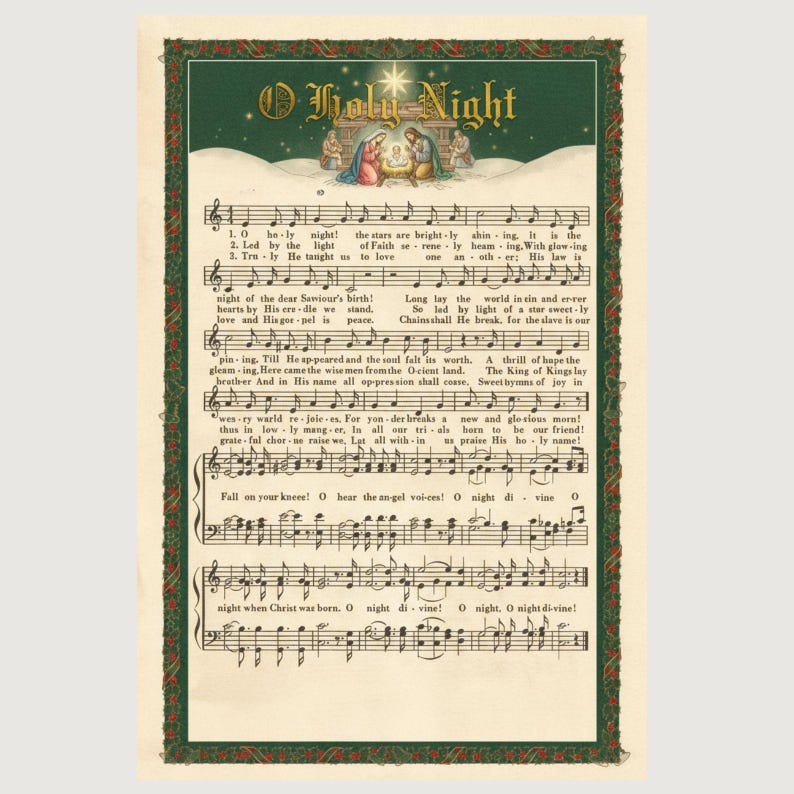 O Holy Night
1. O ho - ly night! the stars are bright - ly ahin - ing, it is the
2. Led by the light of Faith se - rene - ly heam - ing, With glow - ing
3. Tru - ly He tanght us to love one an - oth - er; His law is
night of the dear Sawiour's birth! Long lay the world in ein and er-rer
hearts by His cre - dle we stand. So led by light of a star sweet - ly
love and His gor - nel is peace. Chains shall He break, for the slave is our
pin - ing, Till He ap-peared and the soul falt its worth. A thrill of hope the
gleam - ing, Here came the wise men from the O-cient land. The King of Kings lay
broth-er And in His name all op-pres sion shall coase. Sweet hymns of joy in
wes - ry warld re - joic - es. For yon - der breaks a new and glo-sious morn!
thus in low - ly mang - er, In all our tri - als born to be our friend!
grate - ful chor - ne raise we, Lat all with - in us praise His ho - ly name!
Fall on your kneee! O hear the an-gel voi-ces! O night di - vine O
night when Christ was born. O night di - vine! O night, O night di-vine!